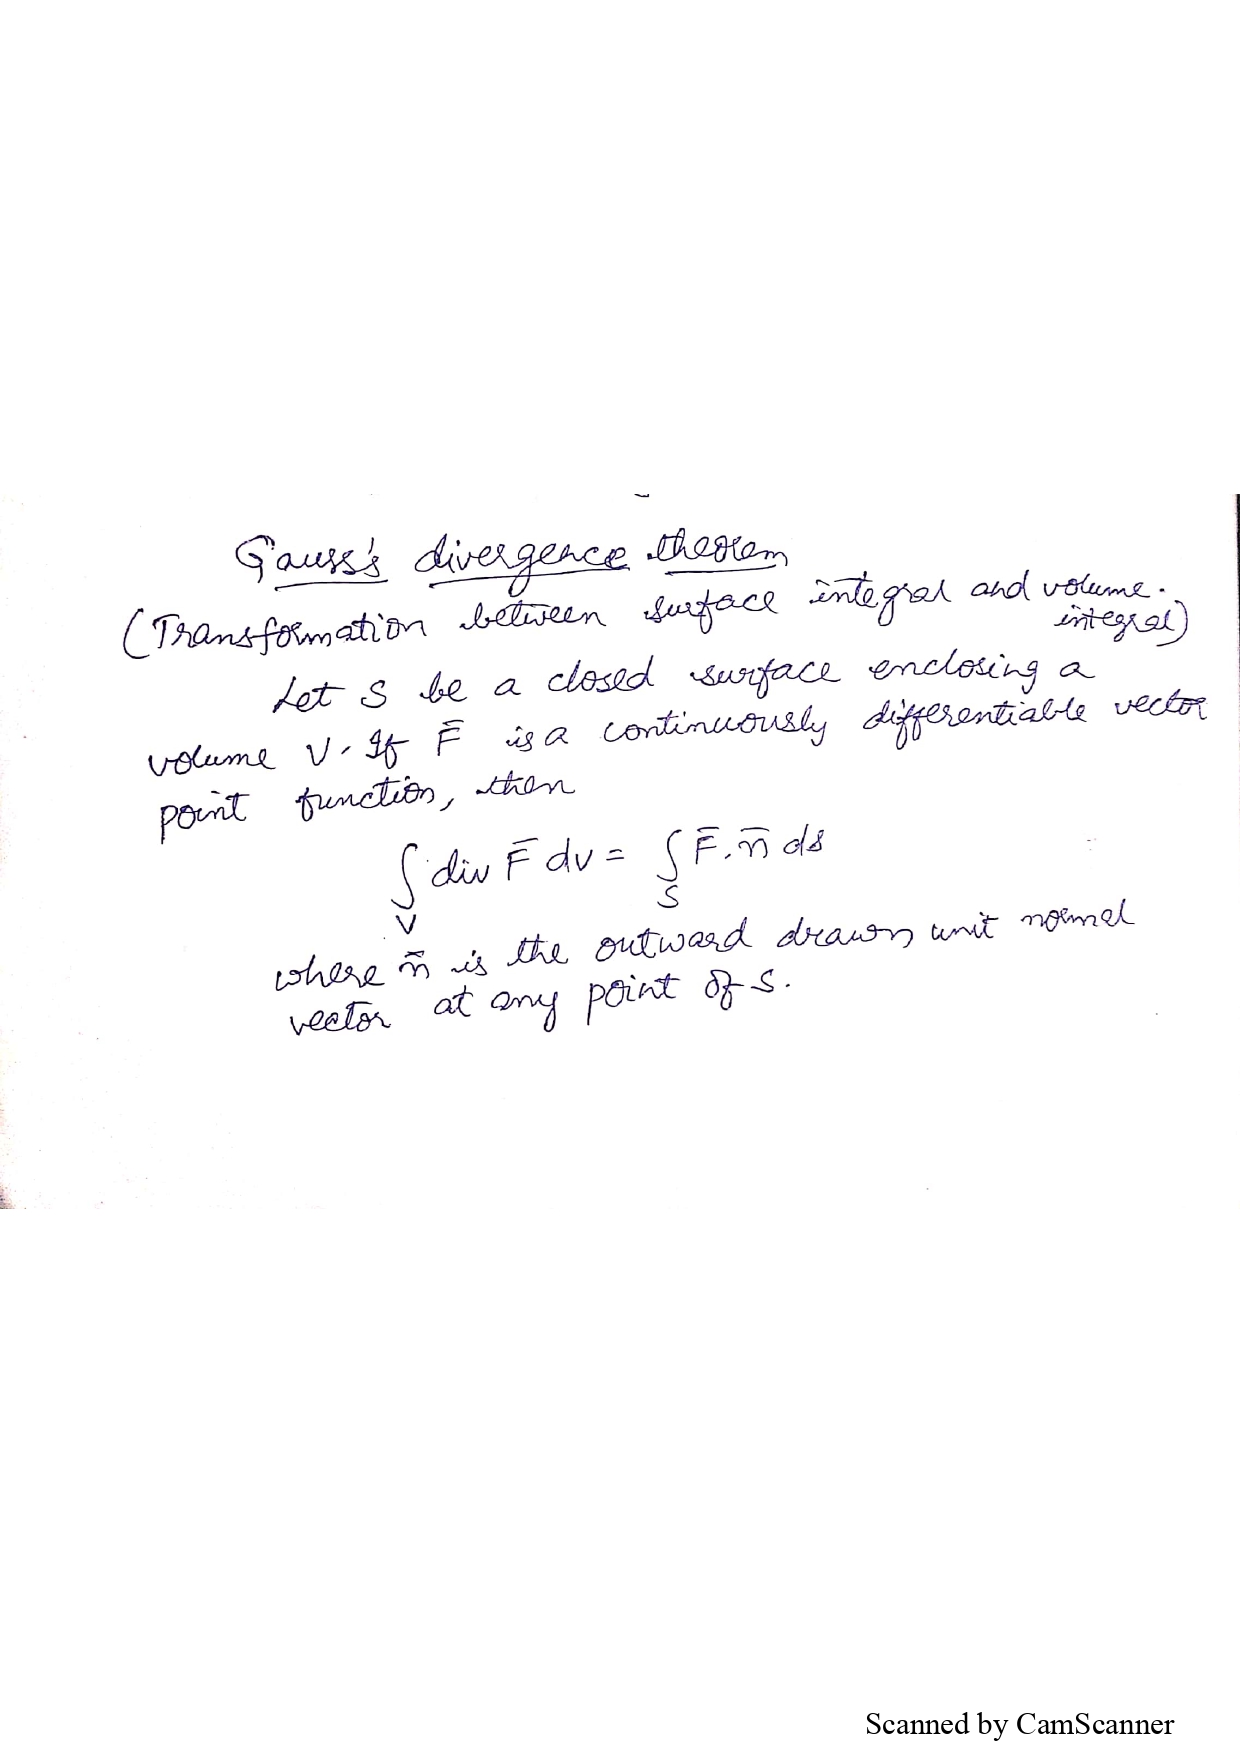 Gauss's divergence theorem
(Transformation between surface integral and volume.
integral)
Let S be a closed surface enclosing a
volume V. If F̄ is a continuously differentiable vector
point function, then
∫_V div F̄ dv = ∫_S F̄. n̄ ds
where n̄ is the outward drawn unit normal
vector at any point of S.
Scanned by CamScanner